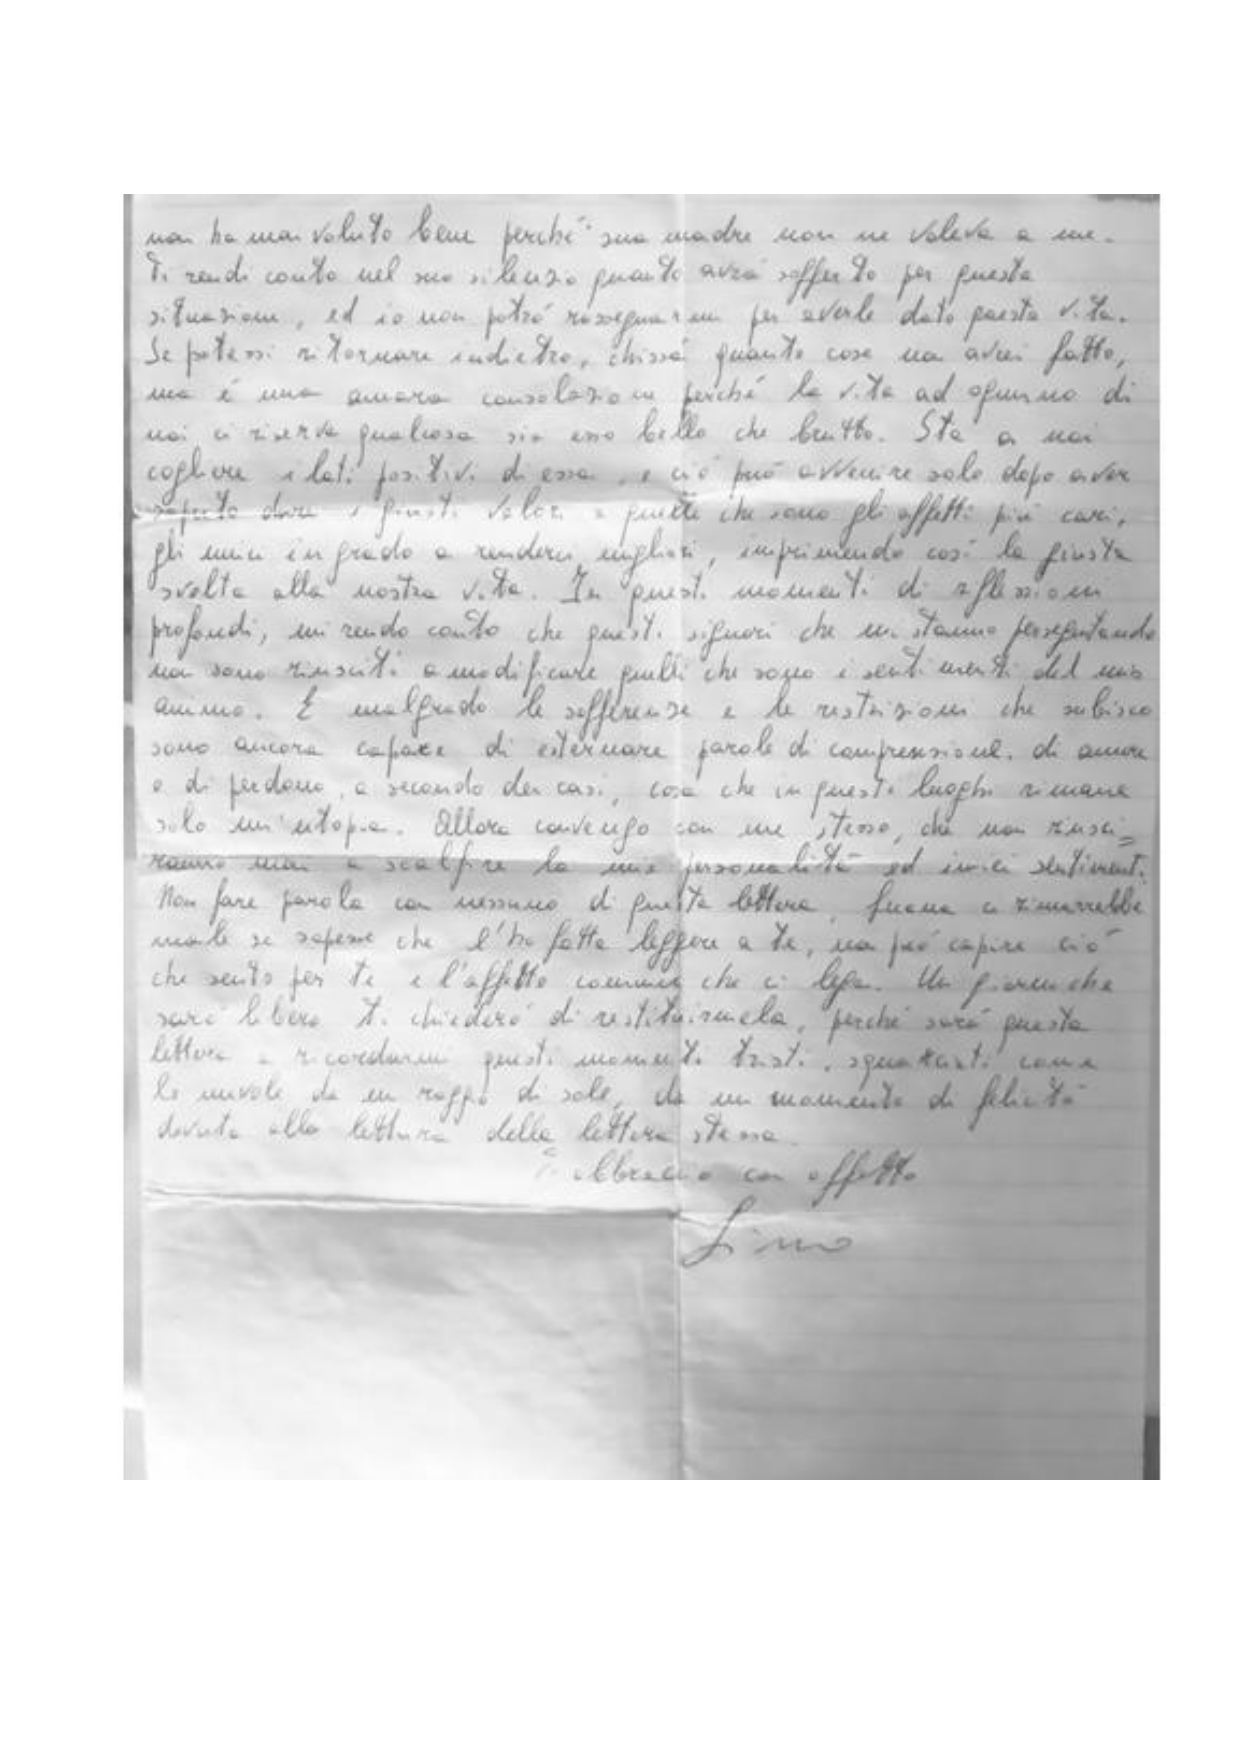 non ha mai voluto bene perché sua madre non ne voleva a me.
Ti rendi conto nel suo silenzio quanto avrà sofferto per questa
situazione, ed io non potrò rassegnarmi per averle dato questa vita.
Se potessi ritornare indietro, chissà quante cose non avrei fatto,
ma è una amara consolazione perché la vita ad ognuno di
noi ci riserva qualcosa sia esso bello che brutto. Sta a noi
cogliere i lati positivi di essa, e ciò può avvenire solo dopo aver
saputo dare i giusti valori a quelli che sono gli affetti più cari,
gli unici in grado a renderci migliori, imprimendo così la giusta
svolta alla nostra vita. In questi momenti di riflessioni
profondi, mi rendo conto che questi signori che mi stanno perseguitando
non sono riusciti a modificare quelli che sono i sentimenti del mio
animo. E malgrado le sofferenze e le restrizioni che subisco
sono ancora capace di esternare parole di comprensione, di amore
o di perdono, a secondo dei casi, cosa che in questi luoghi rimane
solo un'utopia. Allora convengo con me stesso, che non riusci=
ranno mai a scalfire la mia personalità ed i miei sentimenti.
Non fare parola con nessuno di questa lettera, ci rimarrebbe
male se sapesse che l'ho fatta leggere a te, non può capire ciò
che sento per te e l'affetto comune che ci lega. Un giorno che
sarò libero ti chiederò di restituirmela, perché sarà questa
lettera a ricordarmi questi momenti tristi, squarciati come
le nuvole da un raggio di sole, da un momento di felicità
dovuta alla lettura della lettera stessa.
Ti abbraccio con affetto